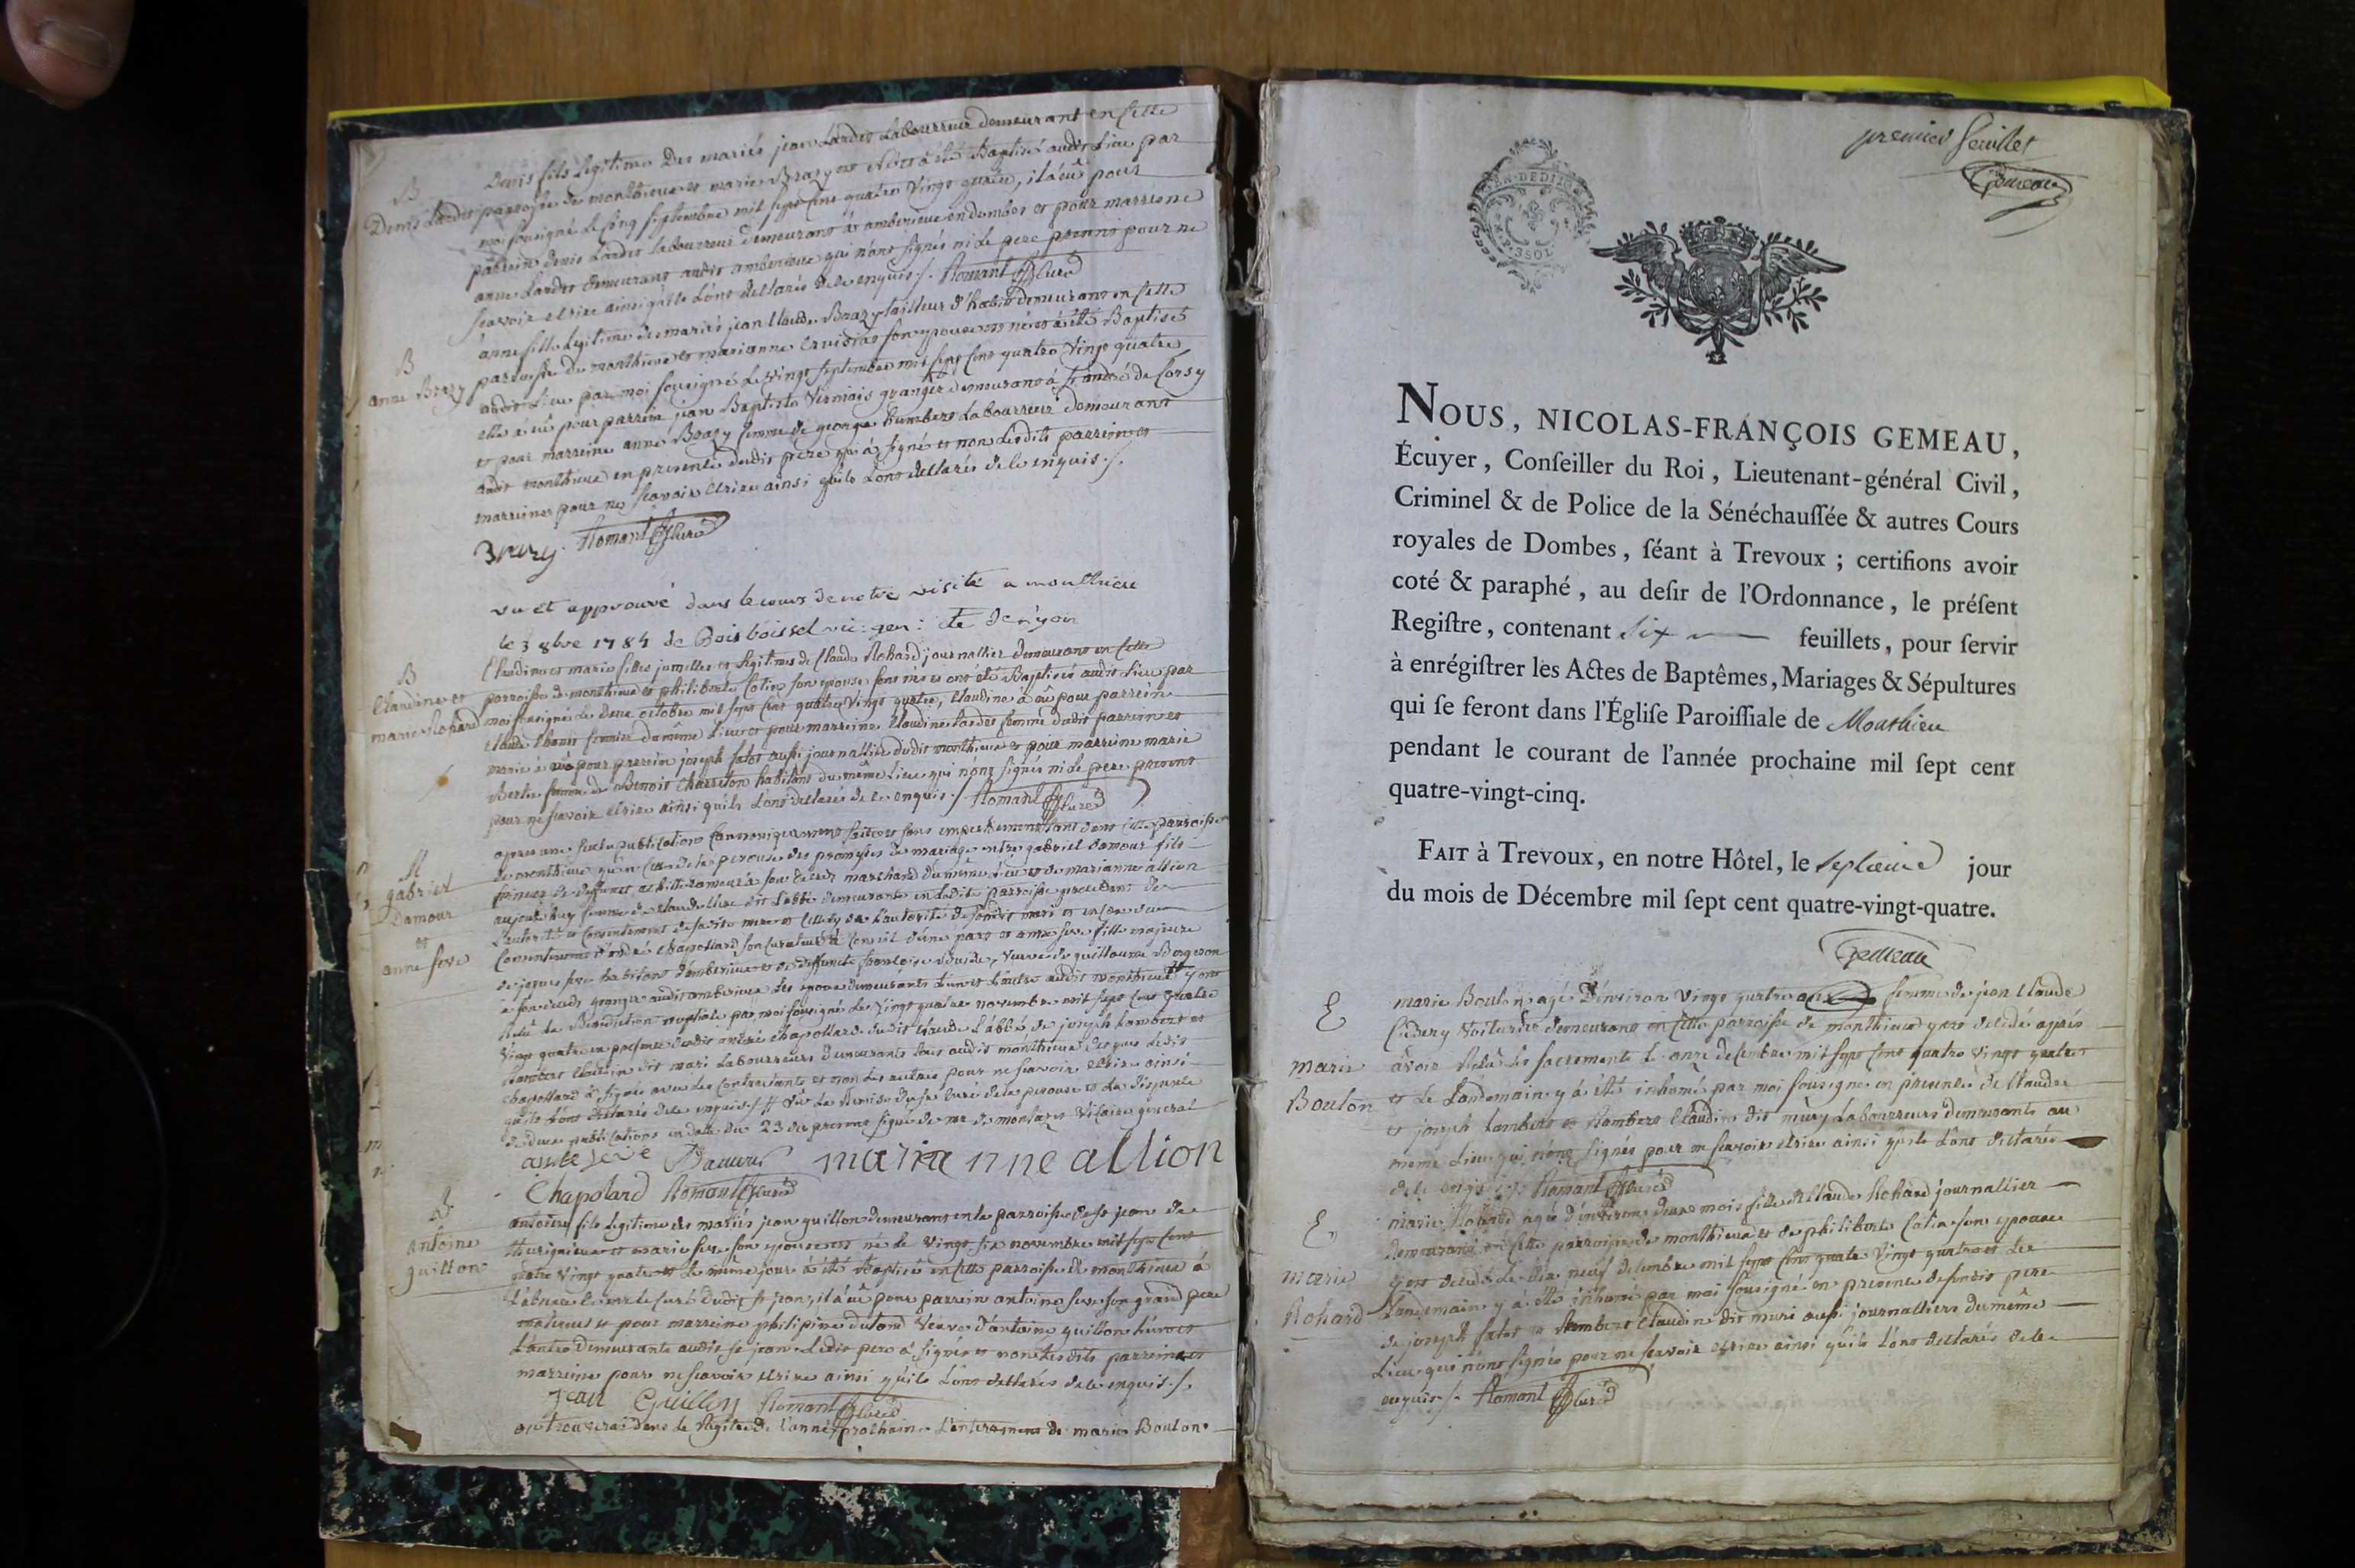 B
Denis Lardet
Denis fils legitime des mariés jean Lardet Labourreur demeurant en cette
parroisse de monthieux et marie Brazy est né et a été Baptisé audit Lieu par
moi soussigné le cinq septembre mil sept cent quatre vingt quatre, il a eu pour
parrein denis Lardet Labourreur demeurant à amberieux en dombes et pour marreine
anne Lardet demeurant audit amberieux qui n'ont signés ni le pere present pour ne
scavoir ecrire ainsi qu'ils l'ont declarés de ce enquis ./. Romant Curé
B
anne Brazy
anne fille legitime des mariés jean Claude Brazy tailleur d'habit demeurant en cette
parroisse de monthieux et marianne son epouse est née et a été Baptisée
audit Lieu par moi soussigné le vingt septembre mil sept cent quatre vingt quatre
elle a eu pour parrein jean Baptiste Vermais granger demeurant à st andré de Corsy
et pour marreine anne Brazy femme de george humbert Labourreur demeurant
audit monthieux en presence dudit pere qui a signé et non lesdits parrein et
marreine pour ne scavoir ecrire ainsi qu'ils l'ont declarés de ce enquis ./.
Brazy. Romant Curé
vu et approuvé dans le cours de notre visite a monthieu
le 3 8bre 1784 de Boisboissel vic: gen: de Lyon
B
Claudine et
marie Rohard
Claudine et marie filles jumelles et legitimes de Claude Rohard journallier demeurant en cette
parroisse de monthieux et philiberte Cotin son epouse sont nées et ont été Baptisées audit Lieu par
moi soussigné le deux octobre mil sept cent quatre vingt quatre, Claudine a eu pour parrein
Claude fermier du même Lieu et pour marreine Claudine Lardet femme dudit parrein et
marie a eu pour parrein joseph falot aussi journallier dudit monthieux et pour marreine marie
Berte femme de Benoit Charreton habitants du même Lieu qui n'ont signés ni le pere present
pour ne scavoir ecrire ainsi qu'ils l'ont declarés de ce enquis ./. Romant Curé
M
gabriel
Damour
et
anne seve
apres une seule publication Cannoniquement faite et sans empechement tant dans cette parroisse
de monthieux qu'en celle de la perouse des promesses de mariage entre gabriel Damour fils
mineur de deffunt Damour à son deces marchand du même Lieu et de marianne allion
aujourd'huy femme de Claude dit Labbé demeurants en ladite parroisse procedant de
l'autorité et consentement de sadite mere et celle cy de l'autorité de sondit mari et encore du
consentement d'andré Chapollard son curateur d'une part et anne seve fille majeure
de seve habitant d'amberieux et de deffuncte françoise veuve de guillaume Bergeron
à son deces granger audit amberieux les epoux demeurants l'un et l'autre audit monthieux y ont
reçu la Benediction nuptiale par moi soussigné le vingt quatre novembre mil sept cent quatre
vingt quatre en presence dudit andré Chapollard dudit Claude Labbé de joseph Lambert et
Rambert Claudin dit mari Labourreurs demeurants tous audit monthieux desquels ledit
Chapollard a signé avec les contractants et non les autres pour ne scavoir ecrire ainsi
qu'ils l'ont declarés de ce enquis ./. # Vu la Remise du sr Curé de la perouse et la dispense
de deux publications en datte du 23 du present signé de mr de montazet Vicaire general
anne seve Damour marianne allion
Chapolard Romant Curé
B
antoine
guillon
antoine fils legitime des mariés jean guillon demeurant en la parroisse de st jean de
thurigneux et marie seve son epouse est né le vingt six novembre mil sept cent
quatre vingt quatre et le même jour a été Baptisé en cette parroisse de monthieux à
l'absence de mr le Curé dudit st jean, il a eu pour parrein antoine seve son grand pere
maternel et pour marreine philipine dutond veuve d'antoine guillon l'un et
l'autre demeurants audit st jean. Ledit pere a signé et non lesdits parrein et
marreine pour ne scavoir ecrire ainsi qu'ils l'ont declarés de ce enquis ./.
Jean Guillon Romant Curé
on trouverai dans le Registre de l'année prochaine l'enterrement de marie Bouton.
premier feuillet
Gemeau
GEN. DE DIJON
NOUS, NICOLAS-FRANÇOIS GEMEAU,
Écuyer, Conſeiller du Roi, Lieutenant-général Civil,
Criminel & de Police de la Sénéchauſſée & autres Cours
royales de Dombes, ſéant à Trevoux ; certifions avoir
coté & paraphé, au deſir de l'Ordonnance, le préſent
Regiſtre, contenant Six feuillets, pour ſervir
à enrégiſtrer les Actes de Baptêmes, Mariages & Sépultures
qui ſe feront dans l'Égliſe Paroiſſiale de Monthieu
pendant le courant de l'année prochaine mil ſept cent
quatre-vingt-cinq.
FAIT à Trevoux, en notre Hôtel, le septieme jour
du mois de Décembre mil ſept cent quatre-vingt-quatre.
Gemeau
E
marie
Bouton
marie Bouton agée d'environ vingt quatre ans femme de jean Claude
Voiturier demeurant en cette parroisse de monthieux y est decedée après
avoir Reçu les sacrements le onze decembre mil sept cent quatre vingt quatre
et le Landemain y a été inhumée par moi soussigné en presence de Claude
et joseph Lambert et Rambert Claudin dit mury Labourreurs demeurants au
même Lieu qui n'ont signés pour ne scavoir ecrire ainsi qu'ils l'ont declarés
de ce enquis ./. Romant Curé
E
marie
Rohard
marie Rohard agée d'environ deux mois fille de Claude Rohard journallier
demeurant en cette parroisse de monthieux et de philiberte Cotin son epouse
y est decedée le dix neuf decembre mil sept cent quatre vingt quatre et le
Landemain y a été inhumée par moi soussigné en presence de sondit pere
de joseph falot et Rambert Claudin dit muri aussi journalliers du même
Lieu qui n'ont signés pour ne scavoir ecrire ainsi qu'ils l'ont declarés de ce
enquis ./. Romant Curé